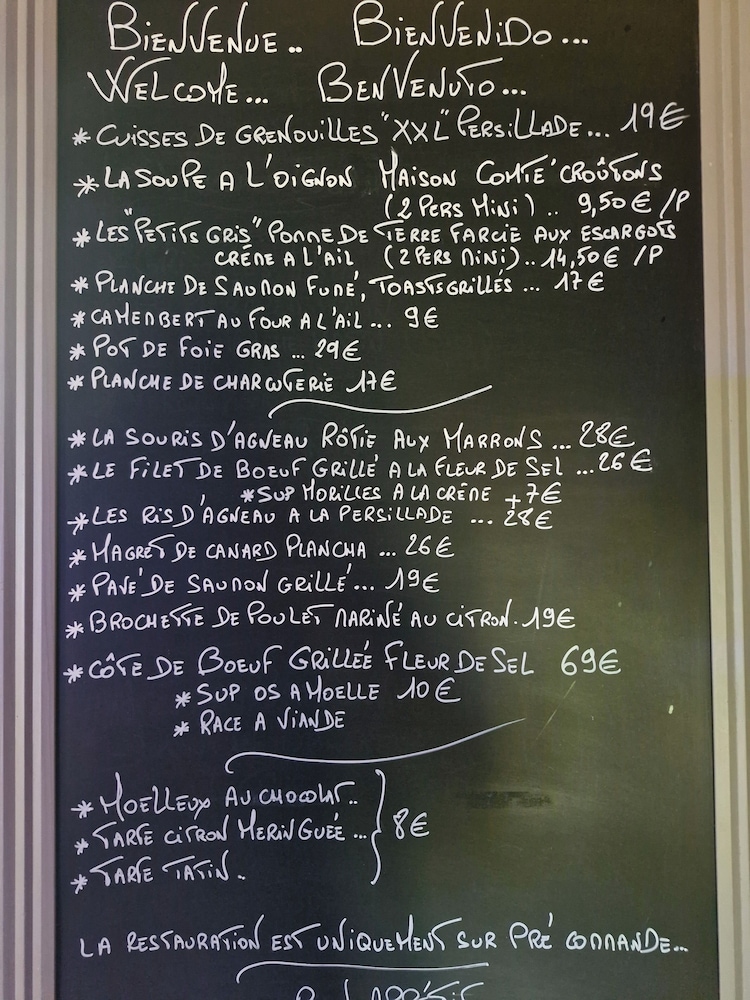 BIENVENUE.. BIENVENIDO...
WELCOME... BENVENUTO...
* CUISSES DE GRENOUILLES "XXL" PERSILLADE... 19€
* LA SOUPE A L'OIGNON MAISON COMTÉ CROÛTONS
(2 PERS MINI).. 9,50€ /P
* LES "PETITS GRIS" POMME DE TERRE FARCIE AUX ESCARGOTS
CRÈME A L'AIL (2 PERS MINI)..14,50€ /P
* PLANCHE DE SAUMON FUMÉ, TOASTS GRILLÉS ... 17€
* CAMEMBERT AU FOUR A L'AIL... 9€
* POT DE FOIE GRAS ... 29€
* PLANCHE DE CHARCUTERIE 17€
* LA SOURIS D'AGNEAU RÔTIE AUX MARRONS ... 28€
* LE FILET DE BOEUF GRILLÉ A LA FLEUR DE SEL ...26€
* SUP MORILLES A LA CRÈME +7€
* LES RIS D'AGNEAU A LA PERSILLADE ... 28€
* MAGRET DE CANARD PLANCHA ... 26€
* PAVÉ DE SAUMON GRILLÉ... 19€
* BROCHETTE DE POULET MARINÉ AU CITRON. 19€
* CÔTE DE BOEUF GRILLÉE FLEUR DE SEL 69€
* SUP OS A MOELLE 10€
* RACE A VIANDE
* MOELLEUX AU CHOCOLAT..
* TARTE CITRON MERINGUÉE ... 8€
* TARTE TATIN.
LA RESTAURATION EST UNIQUEMENT SUR PRÉ COMMANDE...